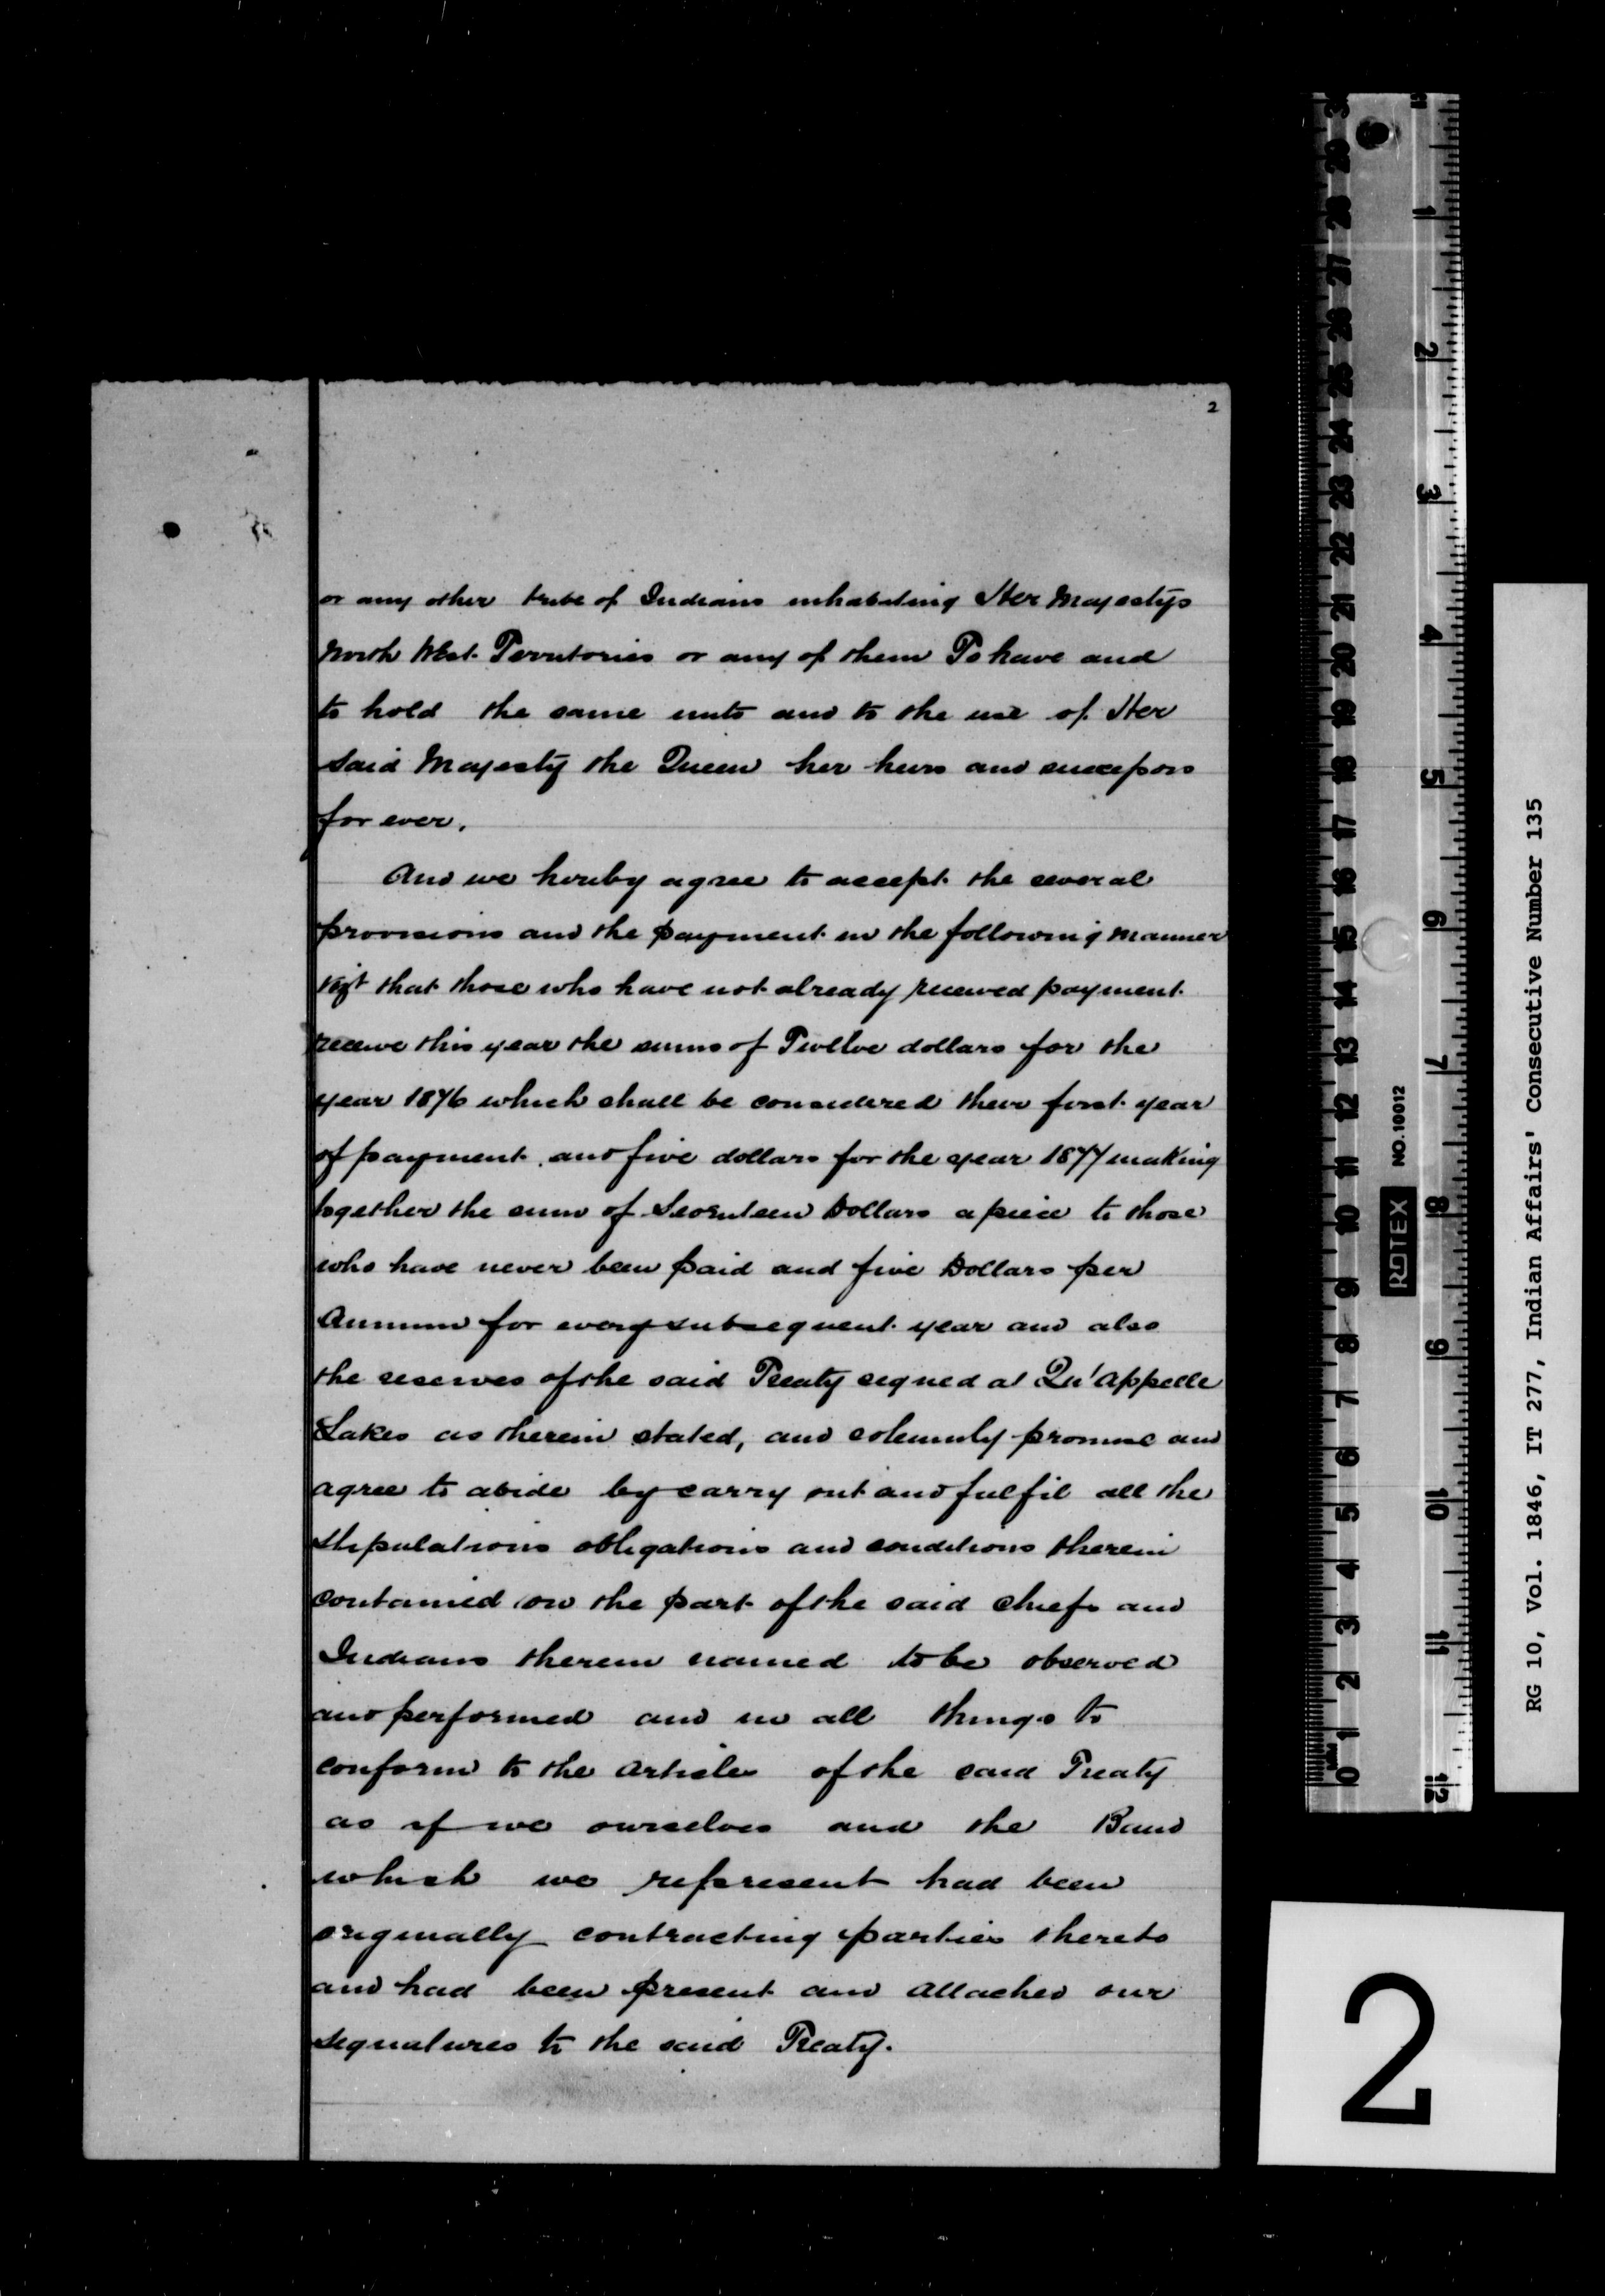 2
or any other tribe of Indians inhabiting Her Majestys
North West Territories or any of them To have and
to hold the same unto and to the use of Her
said Majesty the Queen her heirs and successors
for ever.
And we hereby agree to accept the several
provisions and the payment in the following manner
vizt that those who have not already received payment
receive this year the sums of Twelve dollars for the
year 1876 which shall be considered their first year
of payment and five dollars for the year 1877 making
together the sum of Seventeen Dollars a piece to those
who have never been paid and five Dollars per
Annum for every subsequent year and also
the reserves of the said Treaty signed at Qu'Appelle
Lakes as therein stated, and solemnly promise and
agree to abide by carry out and fulfil all the
stipulations obligations and conditions therein
contained on the part of the said chiefs and
Indians therein named to be observed
and performed and in all things to
conform to the articles of the said Treaty
as if we ourselves and the Band
which we represent had been
originally contracting parties thereto
and had been present and attached our
signatures to the said Treaty.
30 29 28 27 26 25 24 23 22 21 20 19 18 17 16 15 14 13 12 11 10 9 8 7 6 5 4 3 2 1 0
1 2 3 4 5 6 7 8 9 10 11 12
ROTEX NO. 10012
RG 10, Vol. 1846, IT 277, Indian Affairs' Consecutive Number 135
2